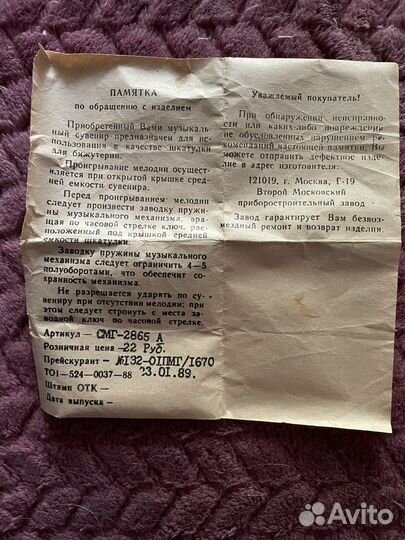 ПАМЯТКА
по обращению с изделием
Приобретенный Вами музыкаль-
ный сувенир предназначен для ис-
пользования в качестве шкатулки
для бижутерии.
Проигрывание мелодии осущест-
вляется при открытой крышке сред-
ней емкости сувенира.
Перед проигрыванием мелодии
следует произвести заводку пружи-
ны музыкального механизма, вра-
щая по часовой стрелке ключ, рас-
положенный под крышкой средней
емкости шкатулки.
Заводку пружины музыкального
механизма следует ограничить 4—5
полуоборотами, что обеспечит со-
хранность механизма.
Не разрешается ударять по су-
вениру при отсутствии мелодии; при
этом следует стронуть с места за-
водной ключ по часовой стрелке.
Артикул — СМГ-2865 А
Розничная цена -22 Руб.
Прейскурант — №132-01ПМГ/1670
ТО1-524-0037-88 23.01.89.
Штамп ОТК —
Дата выпуска —
Уважаемый покупатель!
При обнаружении неисправности
или каких-либо повреждений,
не обусловленных нарушением ре-
комендаций настоящей памятки, Вы
можете отправить дефектное изде-
лие в адрес изготовителя:
121019, г. Москва, Г-19
Второй Московский
приборостроительный завод
Завод гарантирует Вам безвоз-
мездный ремонт и возврат изделия.
Avito